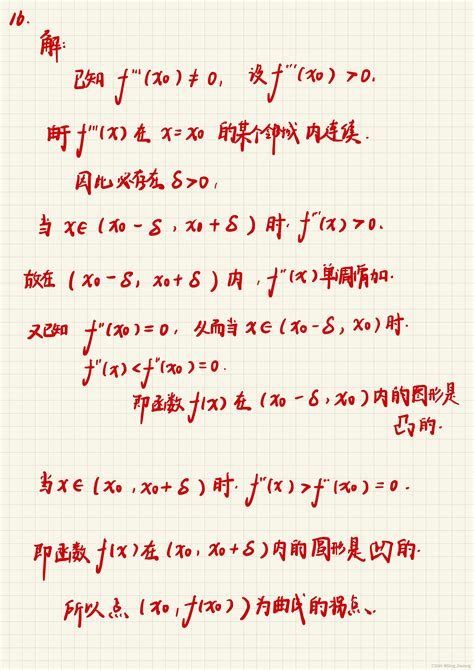 16.
解:
已知 f'''(x₀) ≠ 0, 设 f'''(x₀) > 0.
由于 f'''(x) 在 x = x₀ 的某个邻域内连续.
因此必存在 δ > 0,
当 x ∈ (x₀ - δ, x₀ + δ) 时. f'''(x) > 0.
故在 (x₀ - δ, x₀ + δ) 内, f''(x) 单调增加.
又已知 f''(x₀) = 0, 从而当 x ∈ (x₀ - δ, x₀) 时.
f''(x) < f''(x₀) = 0.
即函数 f(x) 在 (x₀ - δ, x₀) 内的图形是
凸的.
当 x ∈ (x₀, x₀ + δ) 时. f''(x) > f''(x₀) = 0.
即函数 f(x) 在 (x₀, x₀ + δ) 内的图形是凹的.
所以点 (x₀, f(x₀)) 为曲线的拐点.